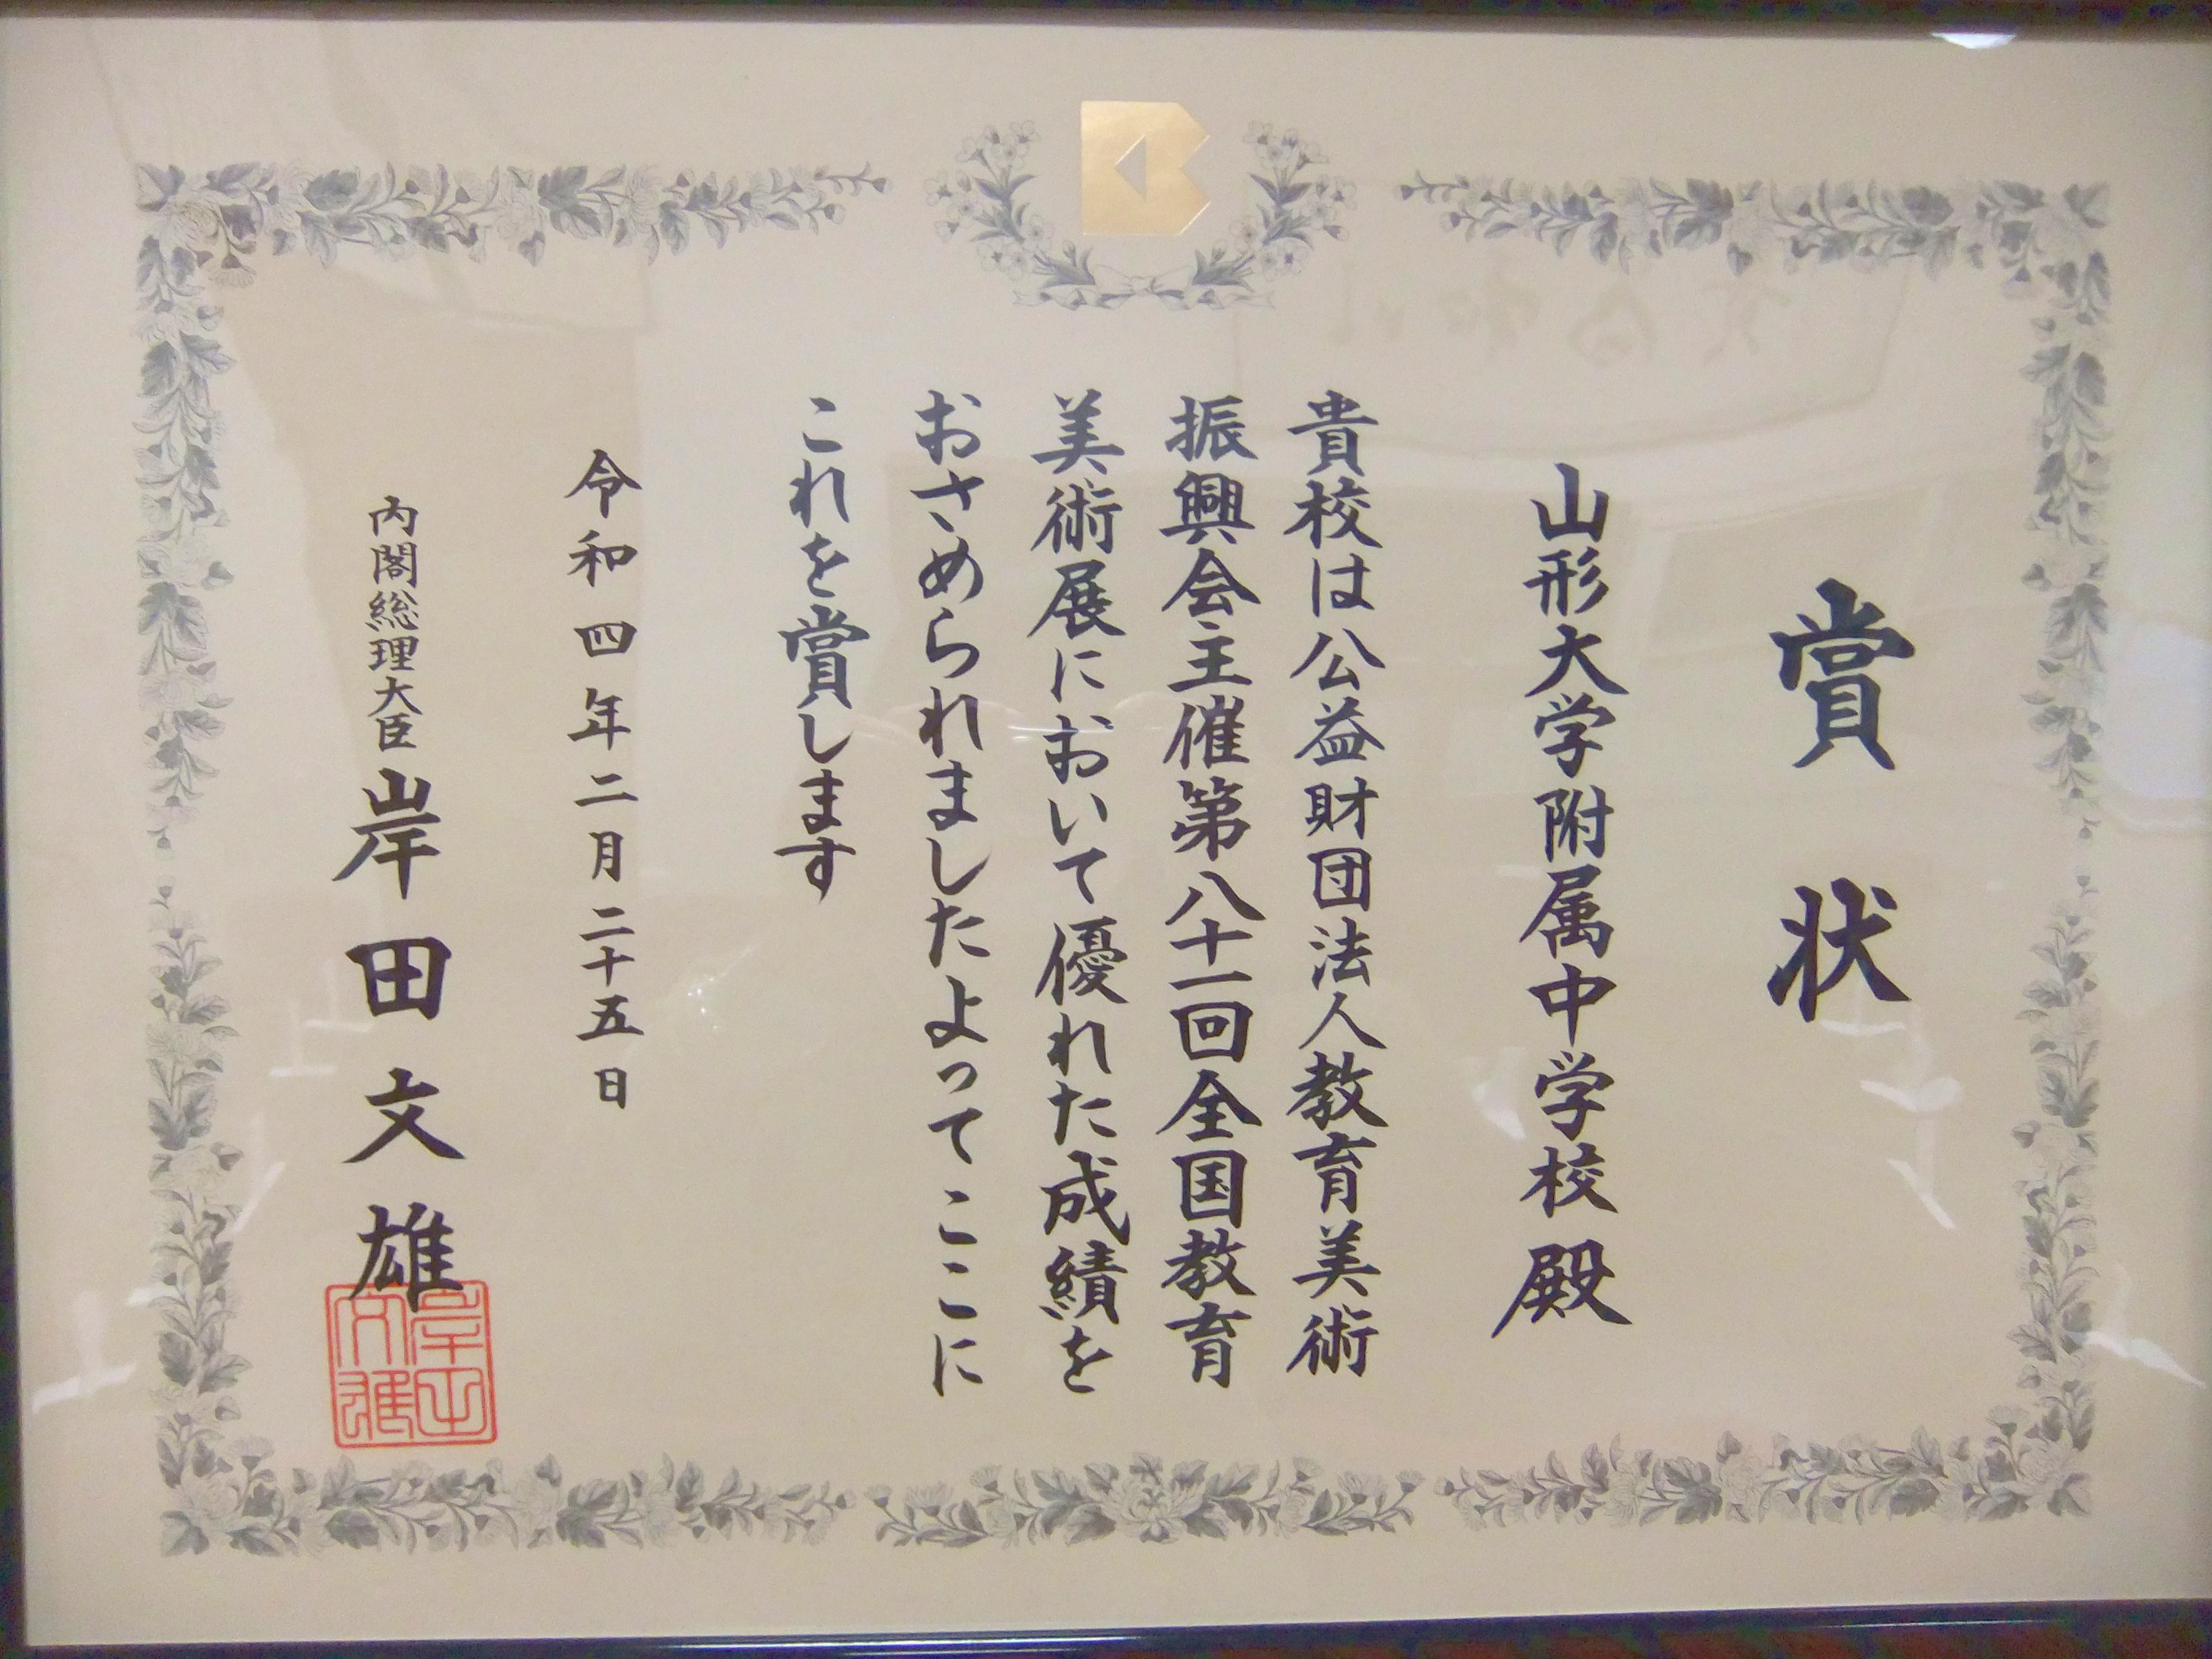 賞状
山形大学附属中学校殿
貴校は公益財団法人教育美術
振興会主催第八十一回全国教育
美術展において優れた成績を
おさめられましたよってここに
これを賞します
令和四年二月二十五日
内閣総理大臣 岸田文雄
岸田文雄